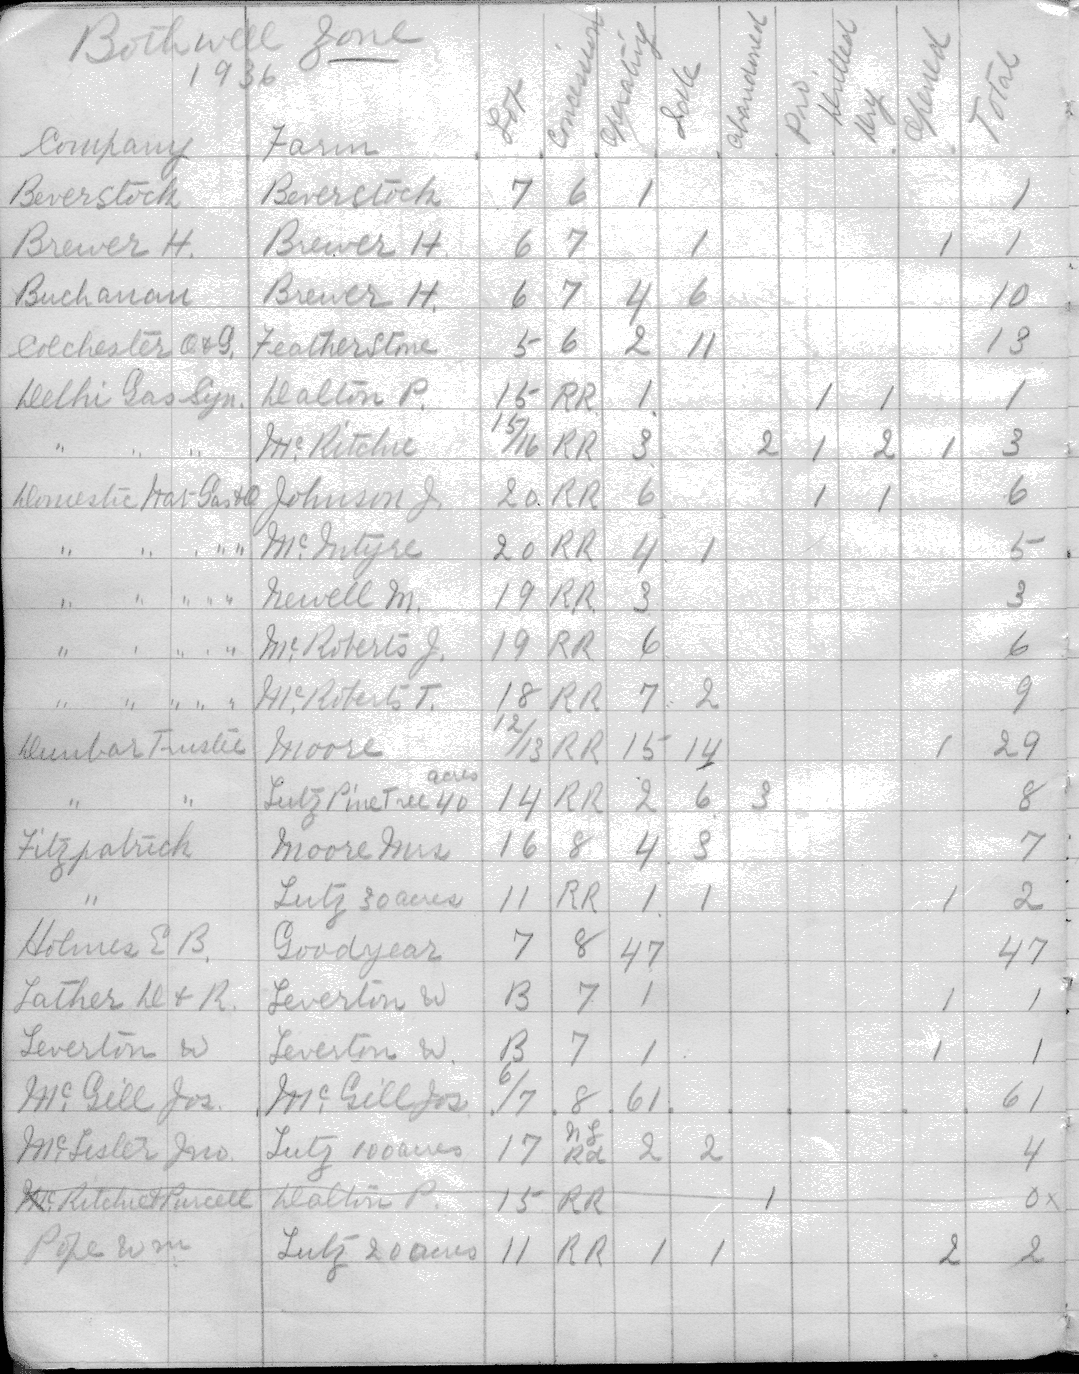 Bothwell Zone
1936
Company Farm Lot Concession Operating Idle abandoned Pro. Drilled Dry Opened Total
Beverstock Beverstock 7 6 1 1
Brewer H. Brewer H. 6 7 1 1 1
Buchanan Brewer H. 6 7 4 6 10
Colchester O & G. Featherstone 5 6 2 11 13
Delhi Gas Syn. Dalton P. 15 RR 1 1 1 1
" " " McRitchie 15/16 RR 3 2 1 2 1 3
Domestic Nat Gas & O Johnson J. 20 RR 6 1 1 6
" " " " " McIntyre 20 RR 4 1 5
" " " " " Newell M. 19 RR 3 3
" " " " " McRoberts J. 19 RR 6 6
" " " " " McRoberts T. 18 RR 7 2 9
Dunbar Trustee Moore 12/13 RR 15 14 1 29
" " Lutz Pinetree 40 acres 14 RR 2 6 3 8
Fitzpatrick Moore Mrs 16 8 4 3 7
" Lutz 30 acres 11 RR 1 1 1 2
Holmes E B. Goodyear 7 8 47 47
Lather D & R. Leverton W B 7 1 1 1
Leverton W Leverton W. B 7 1 1 1
McGill Jos. McGill Jos 6/7 8 61 61
McLister Jno. Lutz 100 acres 17 Rd 2 2 4
McRitchie & Purcell Dalton P. 15 RR 1 0x
Pope Wm Lutz 20 acres 11 RR 1 1 2 2